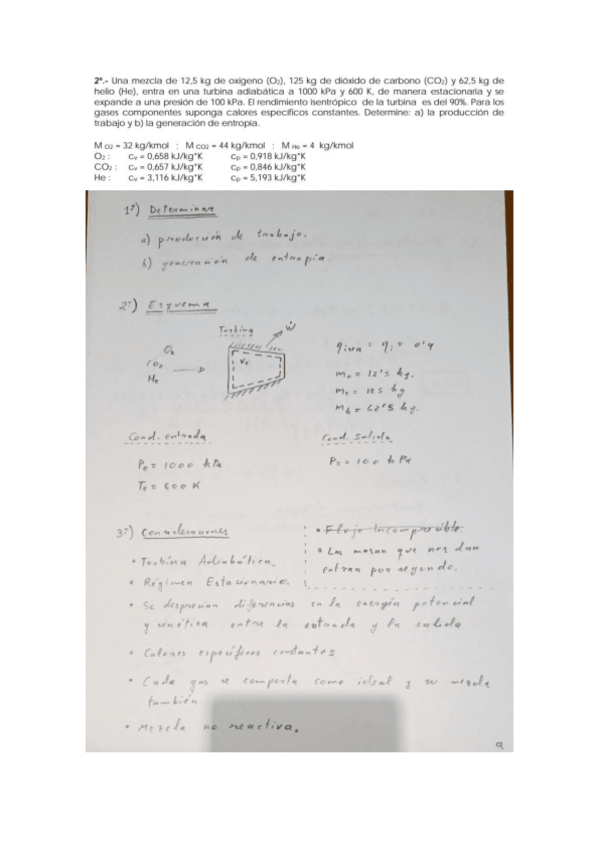 2º.- Una mezcla de 12,5 kg de oxígeno (O₂), 125 kg de dióxido de carbono (CO₂) y 62,5 kg de
helio (He), entra en una turbina adiabática a 1000 kPa y 600 K, de manera estacionaria y se
expande a una presión de 100 kPa. El rendimiento isentrópico de la turbina es del 90%. Para los
gases componentes suponga calores específicos constantes. Determine: a) la producción de
trabajo y b) la generación de entropía.
M O2 = 32 kg/kmol : M CO2 = 44 kg/kmol : M He = 4 kg/kmol
O₂ : Cv = 0,658 kJ/kg*K Cp = 0,918 kJ/kg*K
CO₂ : Cv = 0,657 kJ/kg*K Cp = 0,846 kJ/kg*K
He : Cv = 3,116 kJ/kg*K Cp = 5,193 kJ/kg*K
1º) Determinar
a) producción de trabajo.
b) generación de entropía.
2º) Esquema
Turbina Ẇ
O₂
CO₂
He
V.C
ηisen = ηi = 0'9
mo = 12'5 kg.
mc = 125 kg
mh = 62'5 kg.
Cond. entrada
Pe = 1000 kPa
Te = 600 K
Cond. Salida
Ps = 100 kPa
3º) Consideraciones
• Flujo Incompresible
• Las masas que nos dan
entran por segundo.
• Turbina Adiabática.
• Régimen Estacionario.
• Se desprecian diferencias en la energía potencial
y cinética entre la entrada y la salida
• Calores específicos constantes
• Cada gas se comporta como ideal y su mezcla
también.
• Mezcla no reactiva.